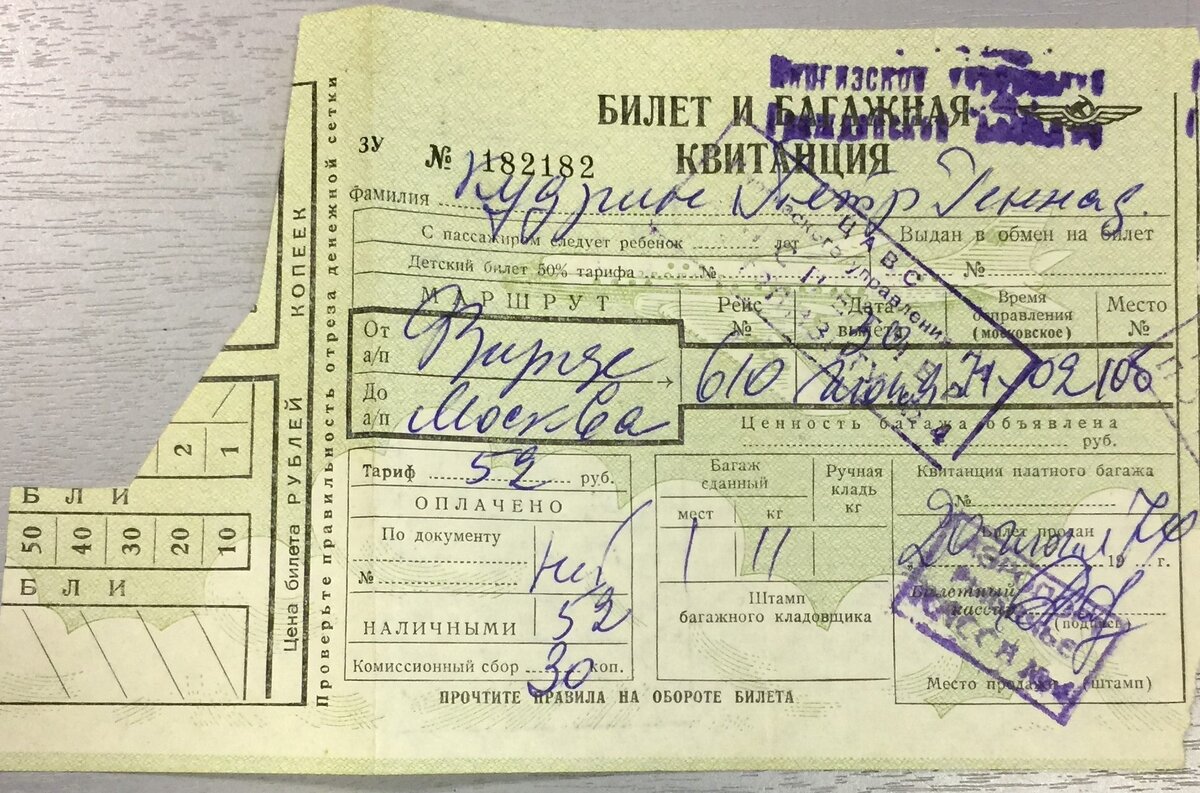 БИЛЕТ И БАГАЖНАЯ
КВИТАНЦИЯ
ЗУ № 182182
Фамилия Кудрин Петр Геннад.
С пассажиром следует ребенок лет
Выдан в обмен на билет
Детский билет 50% тарифа №
№
МАРШРУТ
Рейс №
Дата вылета
Время отправления (московское)
Место №
От а/п Фрунзе
До а/п Москва
610 30 июня 71-02 10б
Ценность багажа объявлена
руб.
Тариф 52 руб.
ОПЛАЧЕНО
По документу
№
НАЛИЧНЫМИ 52
Комиссионный сбор 30 коп.
Багаж сданный
мест кг
Ручная кладь кг
1 11
Штамп багажного кладовщика
Квитанция платного багажа
№
Билет продан
20 19 г.
Билетный кассир
(подпись)
Место продажи (штамп)
ПРОЧТИТЕ ПРАВИЛА НА ОБОРОТЕ БИЛЕТА
Проверьте правильность отреза денежной сетки
Цена билета РУБЛЕЙ КОПЕЕК
2 1
БЛИ
50 40 30 20 10
БЛИ
ЦАВС
управления
КАССА №